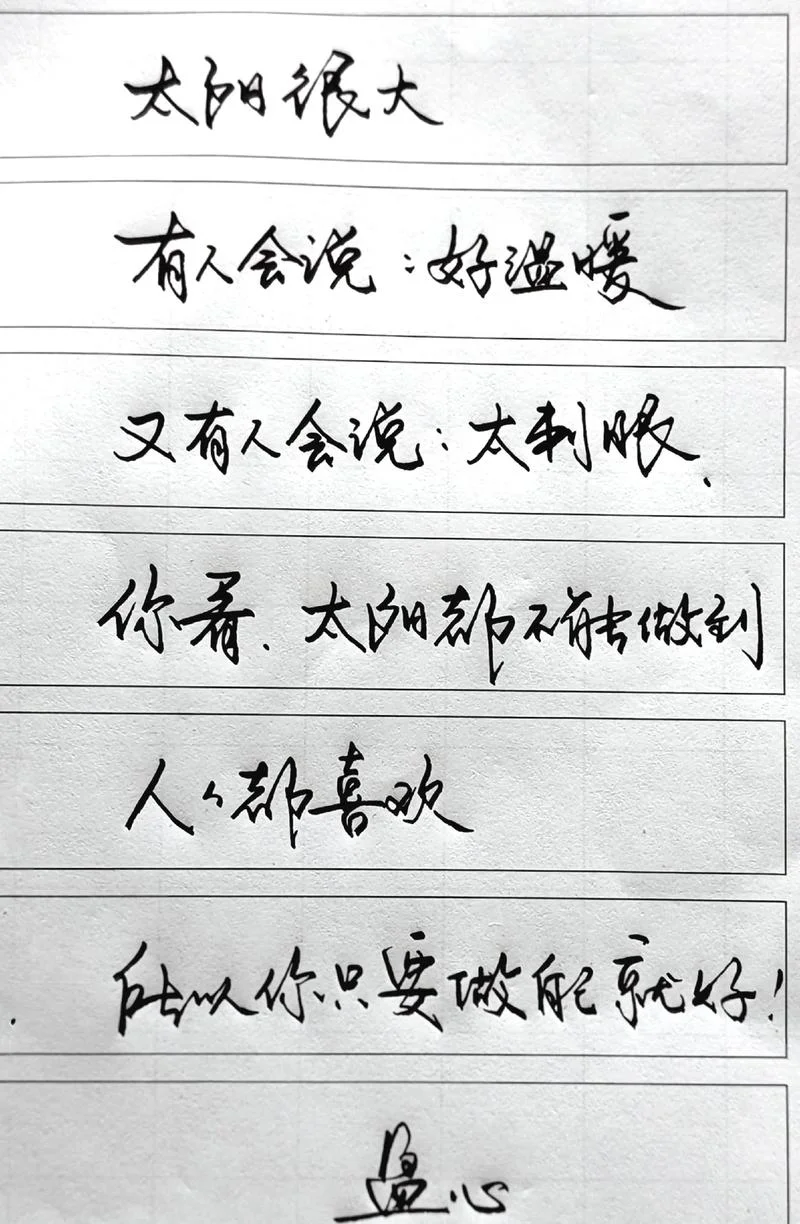 太阳很大
有人会说：好温暖
又有人会说：太刺眼.
你看.太阳都不能做到
人々都喜欢
所以你只要做自己就好！
心